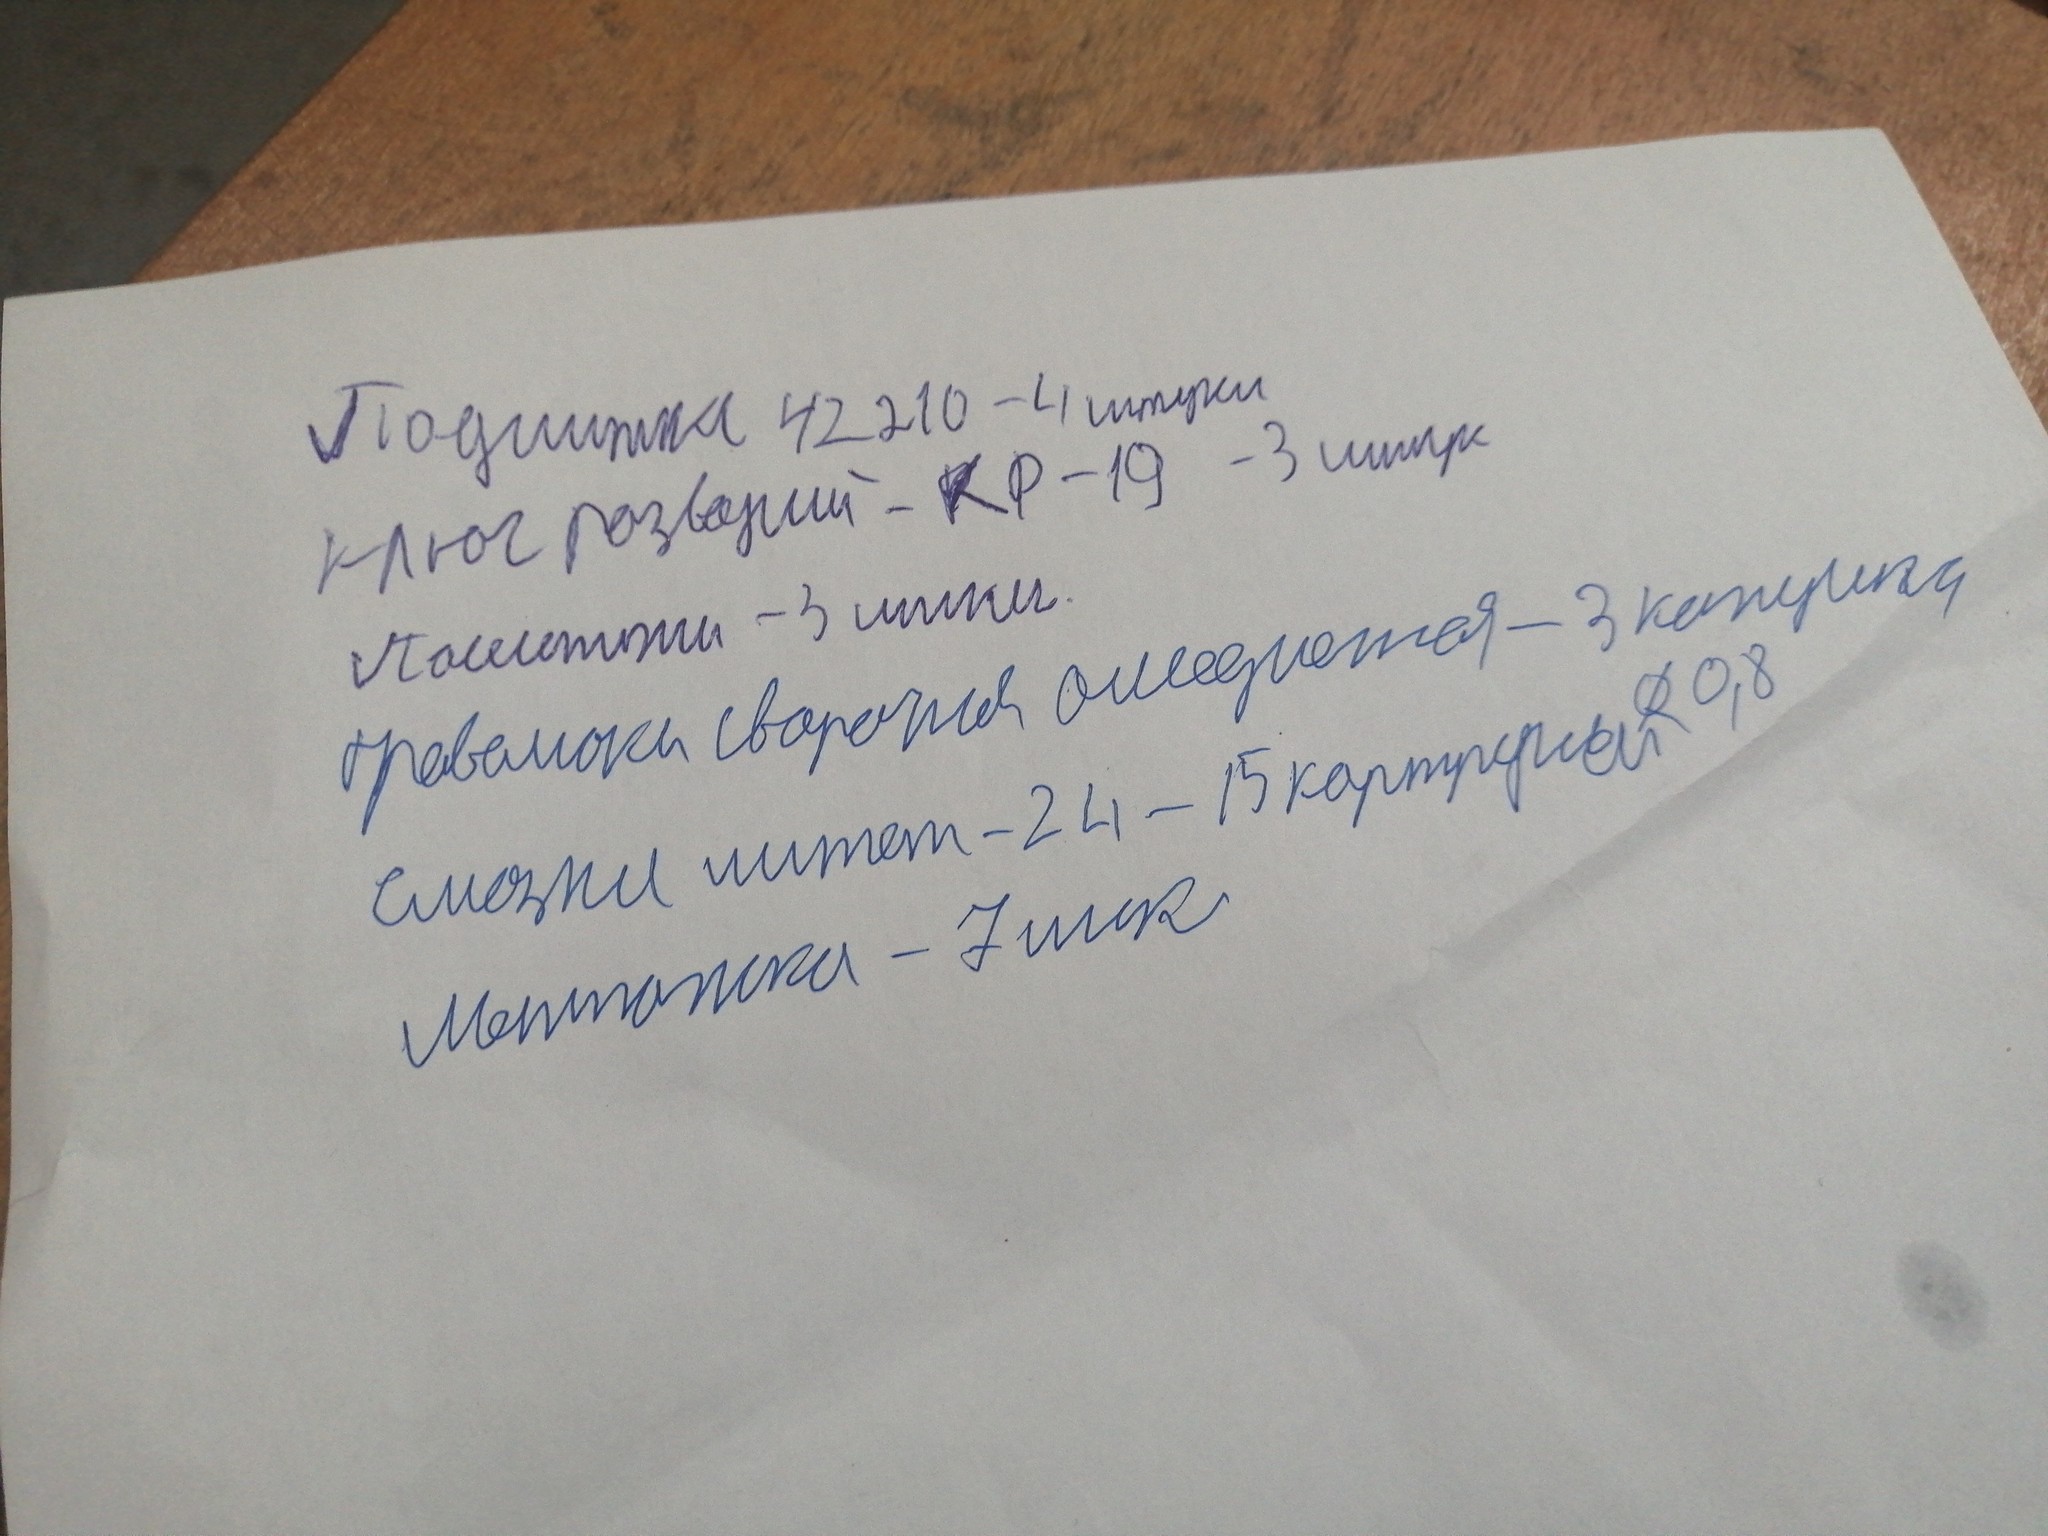 Подшипка 42210 - 4 штуки
Ключ розвадний - КР-19 - 3 штук
- 3 штки.
провалоки сварочная омедненая - 3 катушка
Ø 0,8
смазки литол - 24 - 15 картриджей
Монтажка - 7 штк